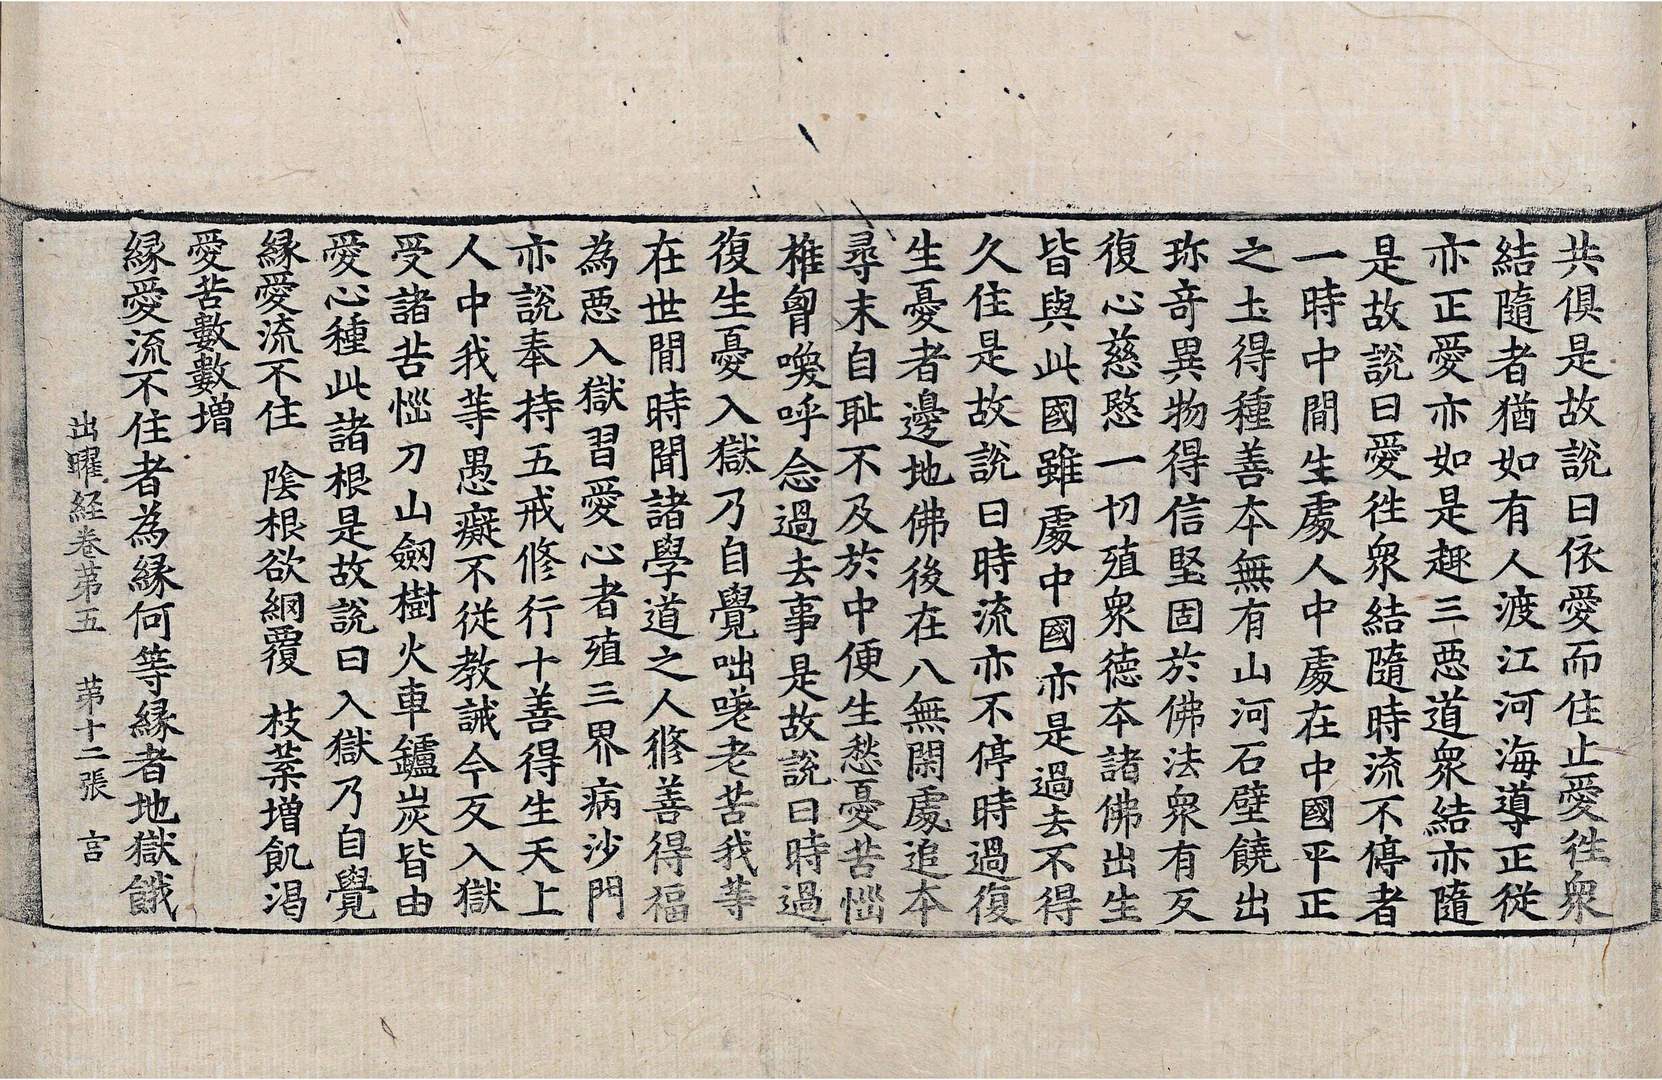 共俱是故說曰依愛而住止愛徃衆
結隨者猶如有人渡江河海導正從
亦正愛亦如是趣三惡道衆結亦隨
是故說曰愛徃衆結隨時流不停者
一時中間生處人中處在中國平正
之土得種善本無有山河石壁饒出
珎竒異物得信堅固於佛法衆有反
復心慈愍一切殖衆德本諸佛出生
皆與此國雖處中國亦是過去不得
久住是故說曰時流亦不停時過復
生憂者邊地佛後在八無閑處追本
尋末自耻不及於中便生愁憂苦惱
椎匈喚呼念過去事是故說曰時過
復生憂入獄乃自覺咄嗟老苦我等
在世間時聞諸學道之人修善得福
為惡入獄習愛心者殖三界病沙門
亦說奉持五戒修行十善得生天上
人中我等愚癡不從教誡今反入獄
受諸苦惱刀山劒樹火車鑪炭皆由
愛心種此諸根是故說曰入獄乃自覺
緣愛流不住　陰根欲網覆　枝葉增飢渴
愛苦數數增
緣愛流不住者為緣何等緣者地獄餓
出曜経卷苐五　苐十二張　言